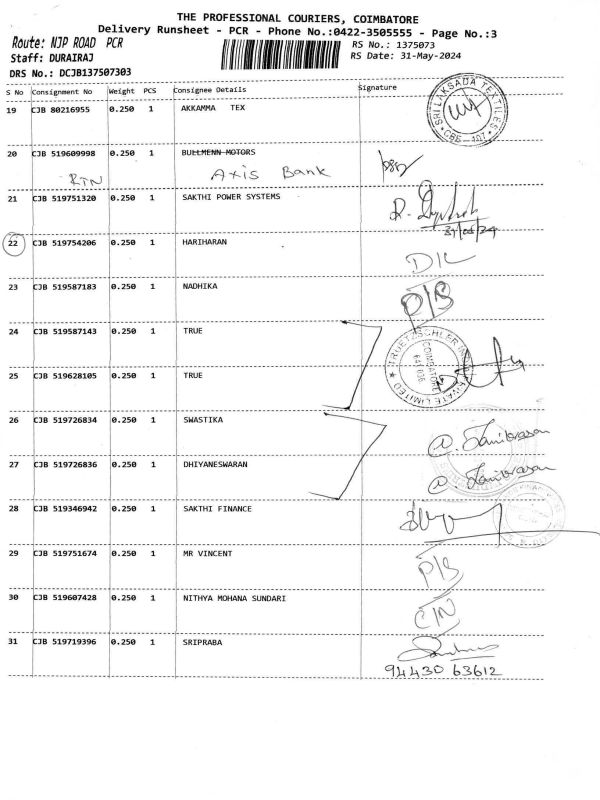 THE PROFESSIONAL COURIERS, COIMBATORE
Delivery Runsheet - PCR - Phone No.:0422-3505555 - Page No.:3
Route: NJP ROAD PCR
RS No.: 1375073
Staff: DURAIRAJ
RS Date: 31-May-2024
DRS No.: DCJB137507303
S No Consignment No Weight PCS Consignee Details Signature
19 CJB 80216955 0.250 1 AKKAMMA TEX
SRI LAKSADA TEXTILES
CBE-407
20 CJB 519609998 0.250 1 BULLMENN MOTORS
RTN Axis Bank
21 CJB 519751320 0.250 1 SAKTHI POWER SYSTEMS
31/05/24
22 CJB 519754206 0.250 1 HARIHARAN
D/L
23 CJB 519587183 0.250 1 NADHIKA
P/B
24 CJB 519587143 0.250 1 TRUE
COIMBATORE
641 036
PRIVATE LIMITED
25 CJB 519628105 0.250 1 TRUE
26 CJB 519726834 0.250 1 SWASTIKA
27 CJB 519726836 0.250 1 DHIYANESWARAN
28 CJB 519346942 0.250 1 SAKTHI FINANCE
29 CJB 519751674 0.250 1 MR VINCENT
P/B
30 CJB 519607428 0.250 1 NITHYA MOHANA SUNDARI
C/N
31 CJB 519719396 0.250 1 SRIPRABA
94430 63612